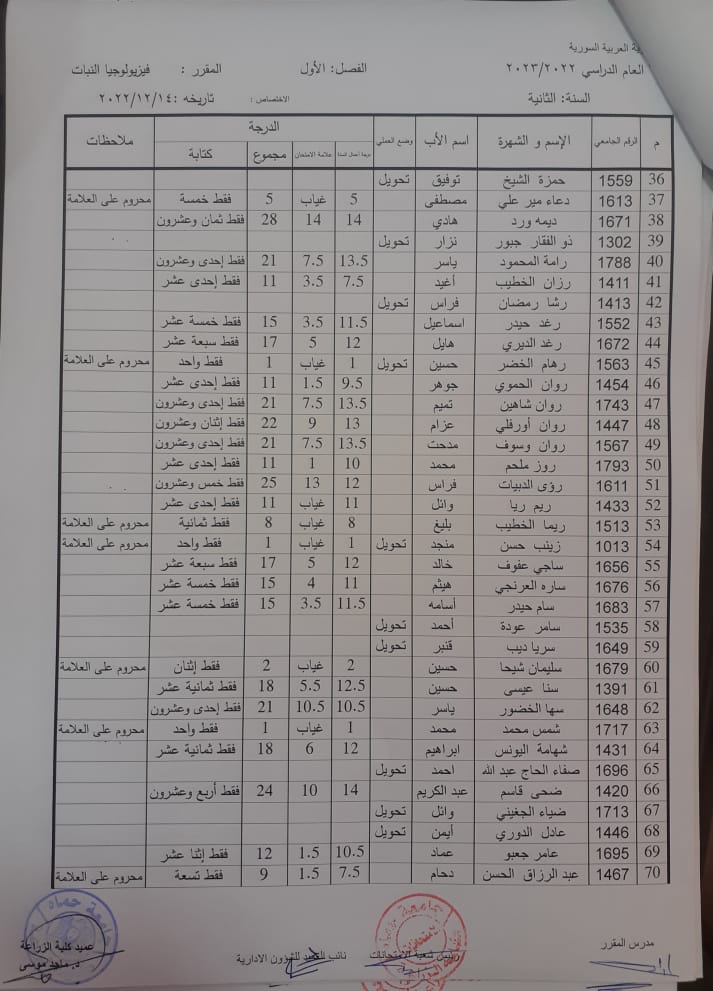 ية العربية السورية
العام الدراسي ٢٠٢٣/٢٠٢٢ الفصل: الأول المقرر : فيزيولوجيا النبات
السنة: الثانية الاختصاص : تاريخه :٢٠٢٢/١٢/١٤
م الرقم الجامعي الإسم و الشهرة اسم الأب وضع العملي الدرجة ملاحظات
درجة أعمال السنة علامة الامتحان مجموع كتابة
36 1559 حمزة الشيخ توفيق تحويل
37 1613 دعاء مير علي مصطفى 5 غياب 5 فقط خمسة محروم على العلامة
38 1671 ديمه ورد هادي 14 14 28 فقط ثمان وعشرون
39 1302 ذو الفقار جبور نزار تحويل
40 1788 رامة المحمود ياسر 13.5 7.5 21 فقط إحدى وعشرون
41 1411 رزان الخطيب أغيد 7.5 3.5 11 فقط إحدى عشر
42 1413 رشا رمضان فراس تحويل
43 1552 رغد حيدر اسماعيل 11.5 3.5 15 فقط خمسة عشر
44 1672 رغد الديري هايل 12 5 17 فقط سبعة عشر
45 1563 رهام الخضر حسين تحويل 1 غياب 1 فقط واحد محروم على العلامة
46 1454 روان الحموي جوهر 9.5 1.5 11 فقط إحدى عشر
47 1743 روان شاهين تميم 13.5 7.5 21 فقط إحدى وعشرون
48 1447 روان أورفلي عزام 13 9 22 فقط إثنان وعشرون
49 1567 روان وسوف مدحت 13.5 7.5 21 فقط إحدى وعشرون
50 1793 روز ملحم محمد 10 1 11 فقط إحدى عشر
51 1611 رؤى الدبيات فراس 12 13 25 فقط خمس وعشرون
52 1433 ريم ريا وائل 11 غياب 11 فقط إحدى عشر
53 1513 ريما الخطيب بليغ 8 غياب 8 فقط ثمانية محروم على العلامة
54 1013 زينب حسن منجد تحويل 1 غياب 1 فقط واحد محروم على العلامة
55 1656 ساجي عفوف خالد 12 5 17 فقط سبعة عشر
56 1676 ساره العرنجي هيثم 11 4 15 فقط خمسة عشر
57 1683 سام حيدر أسامه 11.5 3.5 15 فقط خمسة عشر
58 1535 سامر عودة أحمد تحويل
59 1649 سريا ديب قنبر تحويل
60 1679 سليمان شيحا حسين 2 غياب 2 فقط إثنان محروم على العلامة
61 1391 سنا عيسى حسين 12.5 5.5 18 فقط ثمانية عشر
62 1648 سها الخضور ياسر 10.5 10.5 21 فقط إحدى وعشرون
63 1717 شمس محمد محمد 1 غياب 1 فقط واحد محروم على العلامة
64 1431 شهامة اليونس ابراهيم 12 6 18 فقط ثمانية عشر
65 1696 صفاء الحاج عبد الله احمد تحويل
66 1420 ضحى قاسم عبد الكريم 14 10 24 فقط أربع وعشرون
67 1713 ضياء الجغيني وائل تحويل
68 1446 عادل الدوري أيمن تحويل
69 1695 عامر جعبو عماد 10.5 1.5 12 فقط إثنا عشر
70 1467 عبد الرزاق الحسن دحام 7.5 1.5 9 فقط تسعة محروم على العلامة
مدرس المقرر رئيس شعبة الامتحانات نائب العميد للشؤون الادارية عميد كلية الزراعة
د. ماجد موسى
جامعة حماه